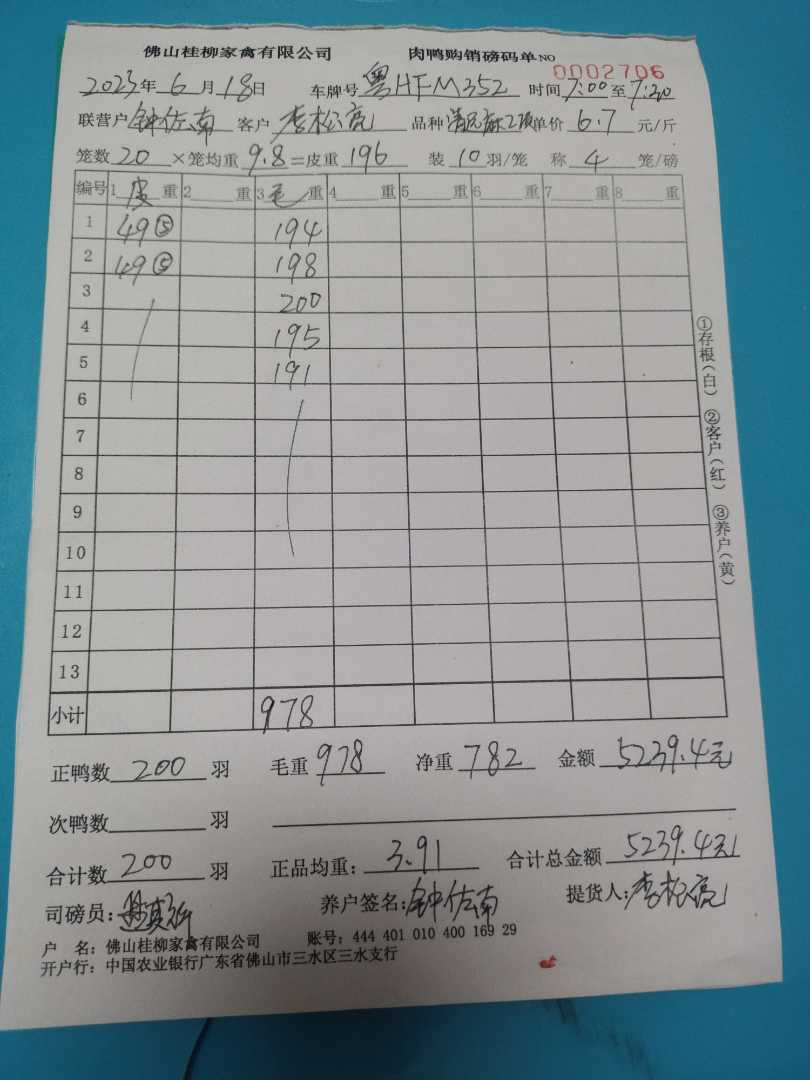 佛山桂柳家禽有限公司 肉鸭购销磅码单 NO 0002706
2023年6月18日 车牌号 粤HFM352 时间 7:00 至 7:30
联营户 钟佐南 客户 李松亮 品种 单价 6.7 元/斤
笼数 20 ×笼均重 9.8 =皮重 196 装 10 羽/笼 称 4 笼/磅
编号 1 皮 重 2 重 3 毛 重 4 重 5 重 6 重 7 重 8 重
1 49⑤ 194
2 49⑤ 198
3 200
4 195
5 191
6
7
8
9
10
11
12
13
小计 978
①存根(白) ②客户(红) ③养户(黄)
正鸭数 200 羽 毛重 978 净重 782 金额 5239.4元
次鸭数 羽
合计数 200 羽 正品均重: 3.91 合计总金额 5239.4元
司磅员: 养户签名: 钟佐南 提货人: 李松亮
户 名: 佛山桂柳家禽有限公司 账号: 444 401 010 400 169 29
开户行: 中国农业银行广东省佛山市三水区三水支行